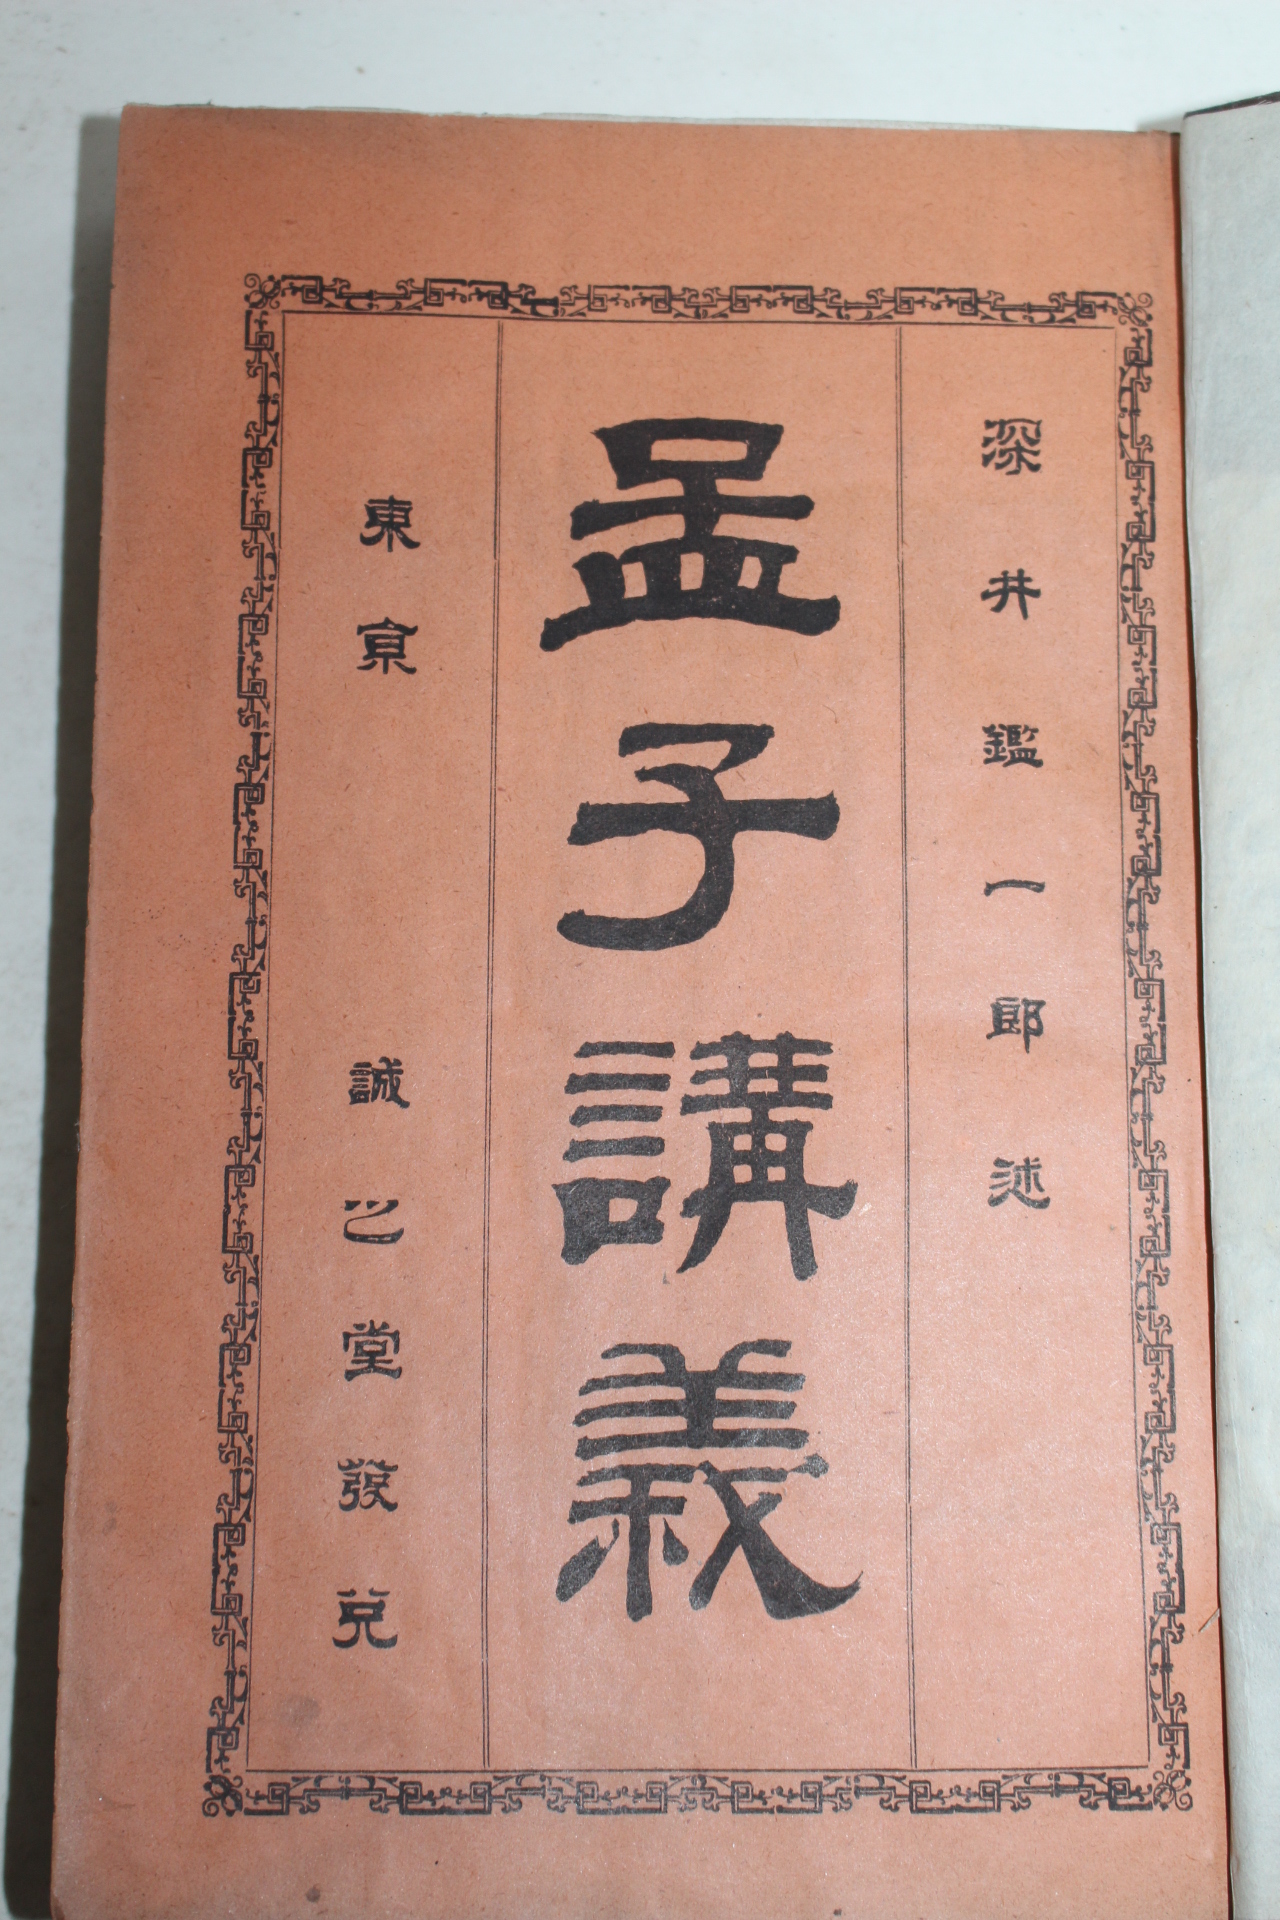 深井鑑一郎述
孟子講義
東京 誠之堂發兌